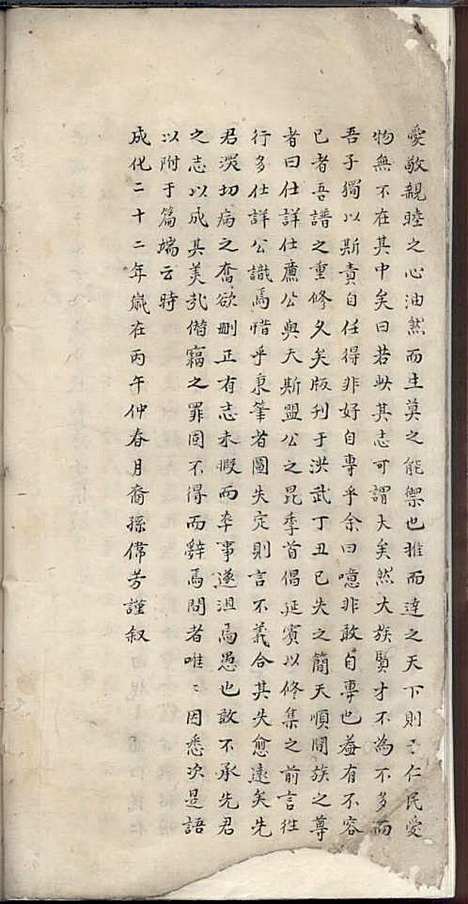 愛敬親睦之心油然而生莫之能禦也推而達之天下則〻仁民愛
物無不在其中矣曰若此其志可謂大矣然大族賢才不為不多而
吾子獨以斯責自任得非好自專乎余曰噫非敢自專也蓋有不容
已者吾譜之重修久矣版刊于洪武丁丑已失之簡天順間族之尊
者曰仕詳仕廌公與天斯盟公之昆季首倡延賓以修集之前言徃
行多仕詳公識焉惜乎秉筆者圖失定則言不義合其失愈遠矣先
君淡切病之奮欲刪正有志未暇而卒事遂沮焉愚也敢不承先君
之志以成其美哉僣竊之罪固不得而辭焉問者唯〻因悉次是語
以附于篇端云時
成化二十二年嵗在丙午仲春月裔孫偉芳謹叙